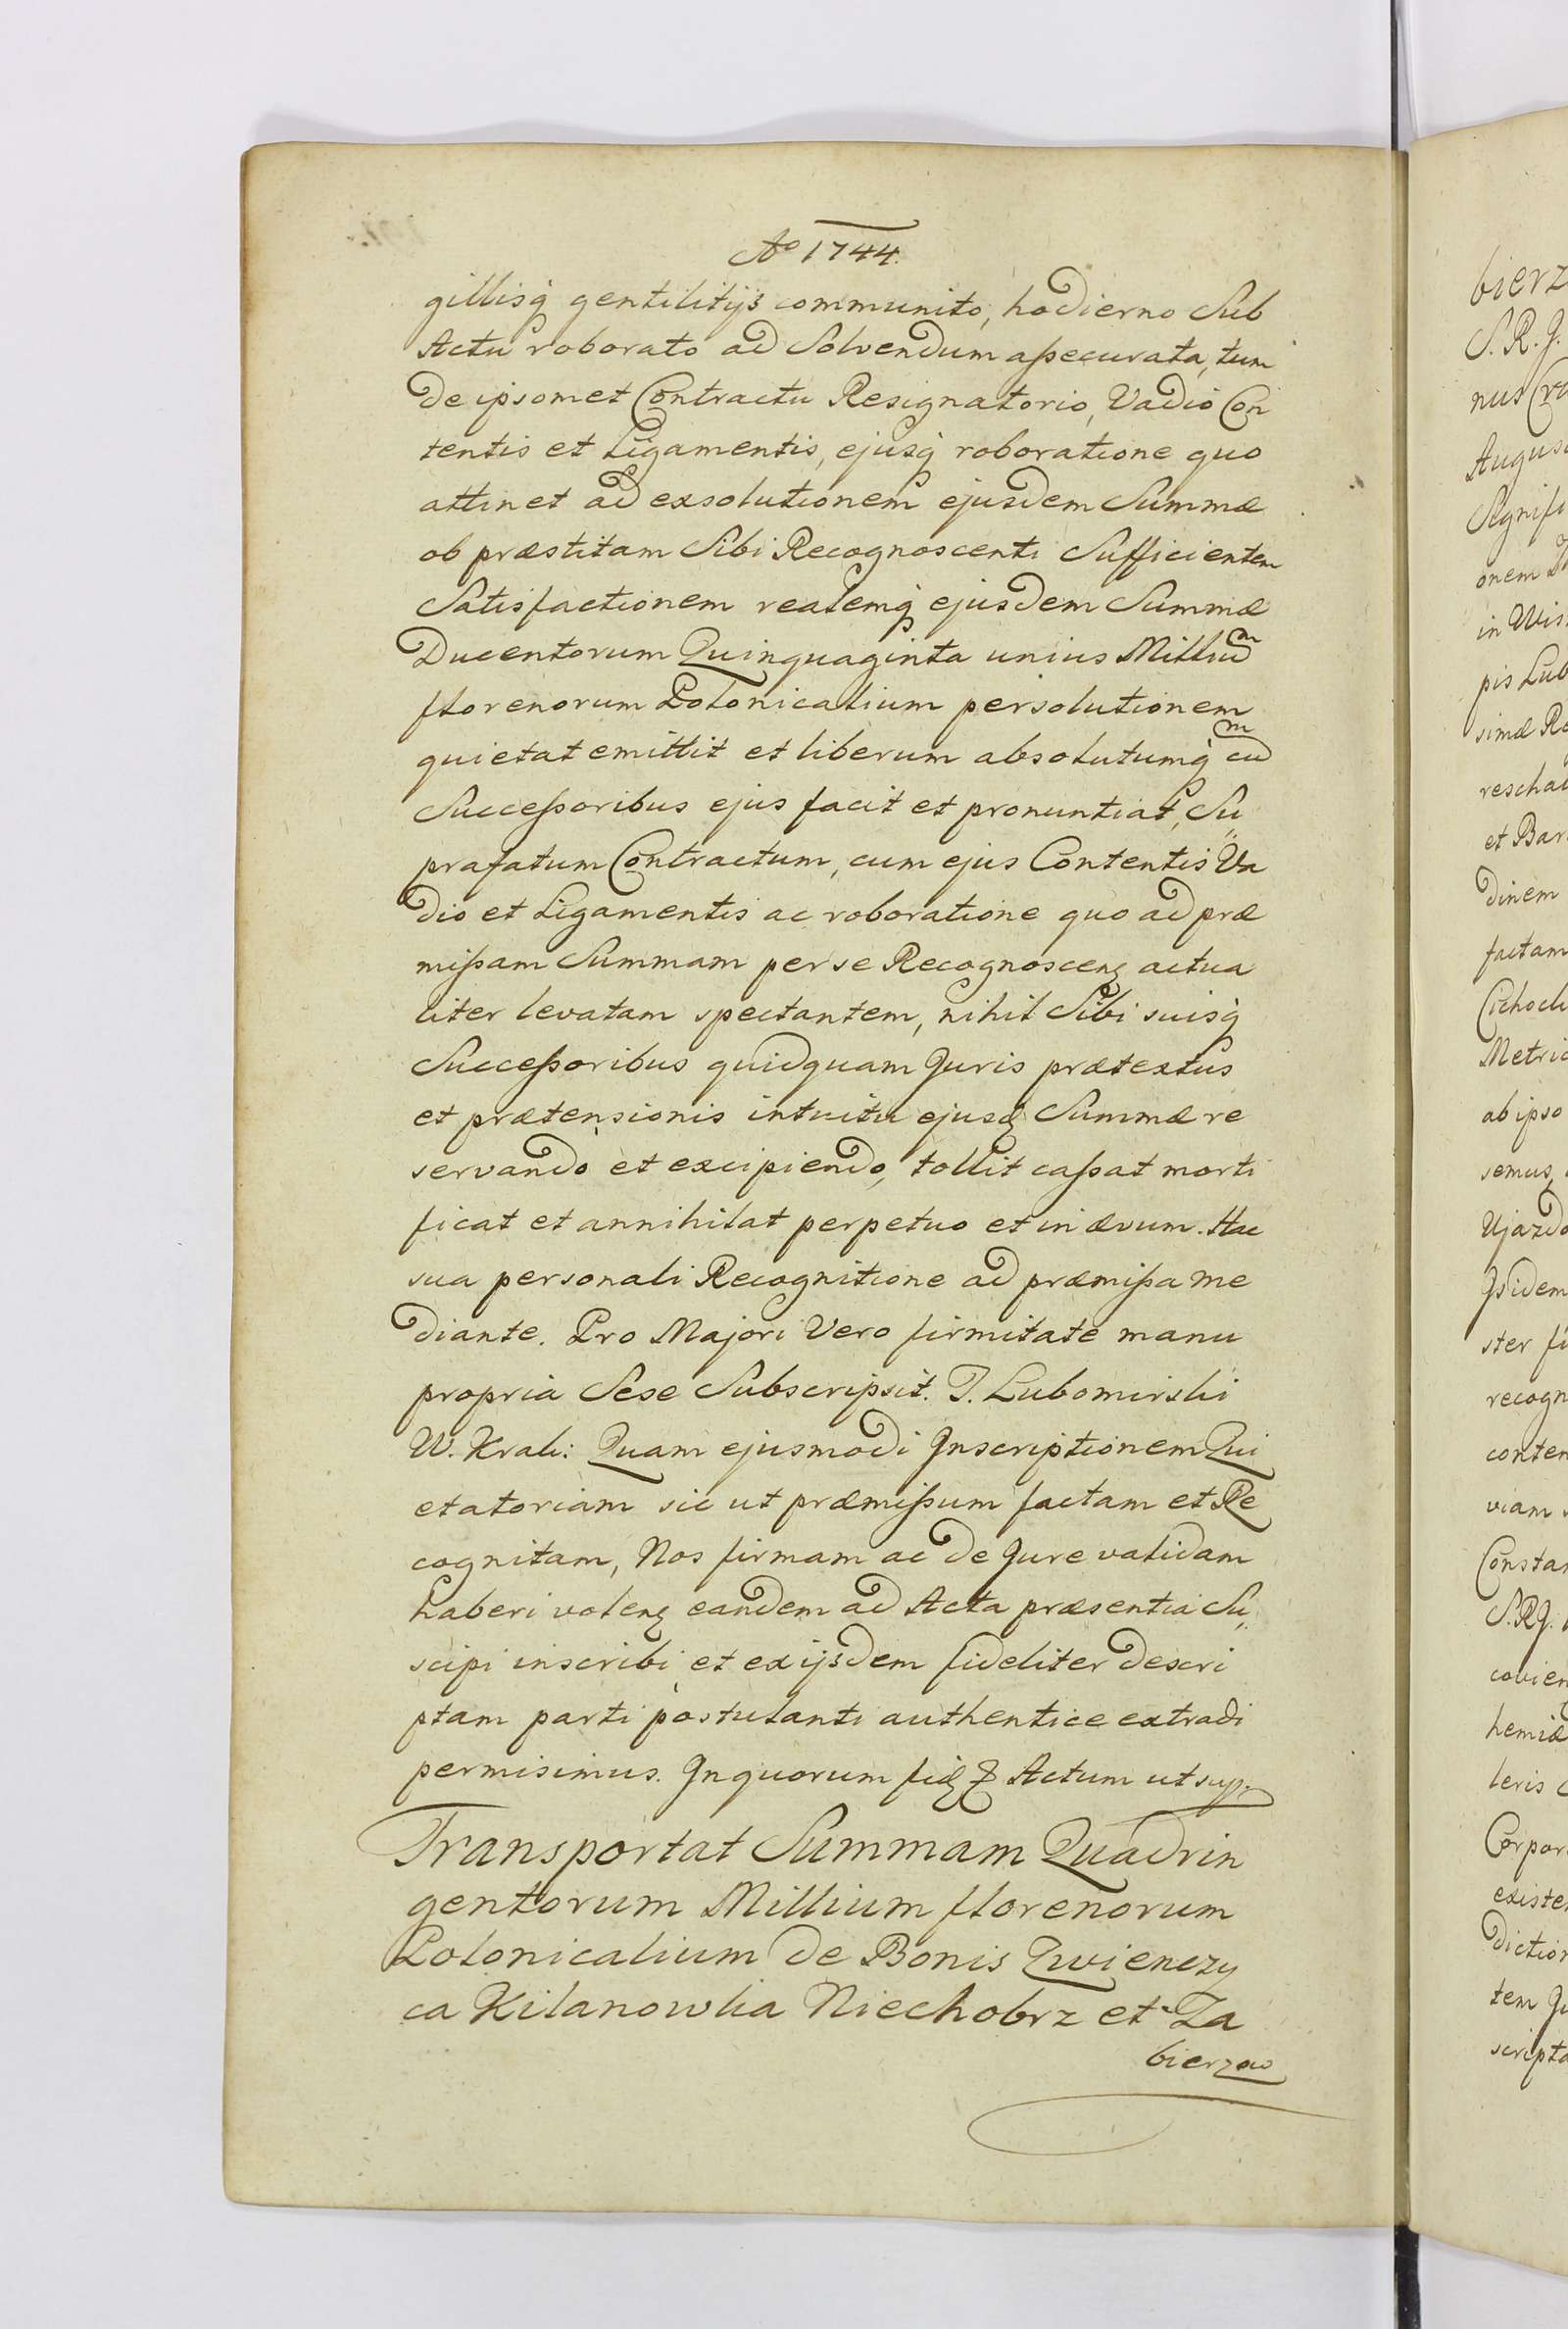 Ao 1744.
gillisq gentilitijs communito, hodierno Sub
Actu roborato ad Solvendum aßecurata, tum
de ipsomet Contractu Resignatorio, Vadio Con
tentis et Ligamentis, ejusq roboratione quo
attinet ad exsolutionem ejusdem Summæ
ob præstitam Sibi Recognoscenti Sufficientem
Satisfactionem realemq ejusdem Summæ
Ducentorum Quinquaginta unius Milliu͠m
florenorum Polonicalium persolutionem
quietat emittit et liberum absolutumq cu͠m
Succeßoribus ejus facit et pronuntiat, Su„
prafatum Contractum, cum ejus Contentis Va
dio et Ligamentis ac roboratione quo ad præ
mißam Summam per se Recognoscenȝ actua
liter levatam spectantem, nihil Sibi suisq
Succeßoribus quidquam Juris prætextus
et prætensionis intuitu ejusȝ Summæ re
servando et excipiendo, tollit caßat morti
ficat et annihilat perpetuo et in ævum. Hac
sua personali Recognitione ad præmißa me
diante. Pro Majori Vero firmitate manu
propria Sese Subscripsit. T. Lubomirski
W. Krak: Quam ejusmodi Inscriptionem Qui
etatoriam sic ut præmißum factam et Re
cognitam, Nos firmam ac de Jure validam
haberi volenȝ eandem ad Acta præsentia Su„
scipi inscribi et ex ijsdem fideliter descri
ptam parti postulanti authentice extradi
permisimus. In quorum fidȝ &c Actum ut sup.
Transportat Summam Quadrin
gentorum Millium florenorum
Polonicalium de Bonis Zwienczy
ca Kilanowka Niechobrz et Za
bierzow
bierz
S. R. J.
nus Cra
Augus
Signifi
onem
in Wis
pis Lub
simæ R
reschal
et Bar
dinem
factam
Cichock
Metric
ab ipso
semus,
Ujazdo
Jsidem
ster fi
recogn
conten
viam
Constan
S. R. J.
covien
hemiæ
leris
Corpor
existen
diction
tem Ju
scripta